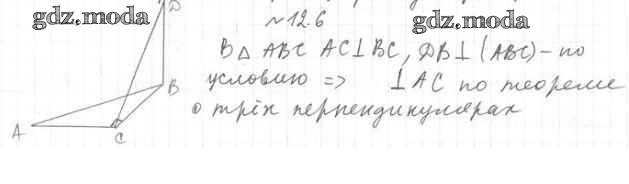 gdz.moda
gdz.moda
D
№12.6
В △ ABC AC⊥BC, DB⊥(ABC) – по
условию => ⊥AC по теореме
о трёх перпендикулярах
B
A
C